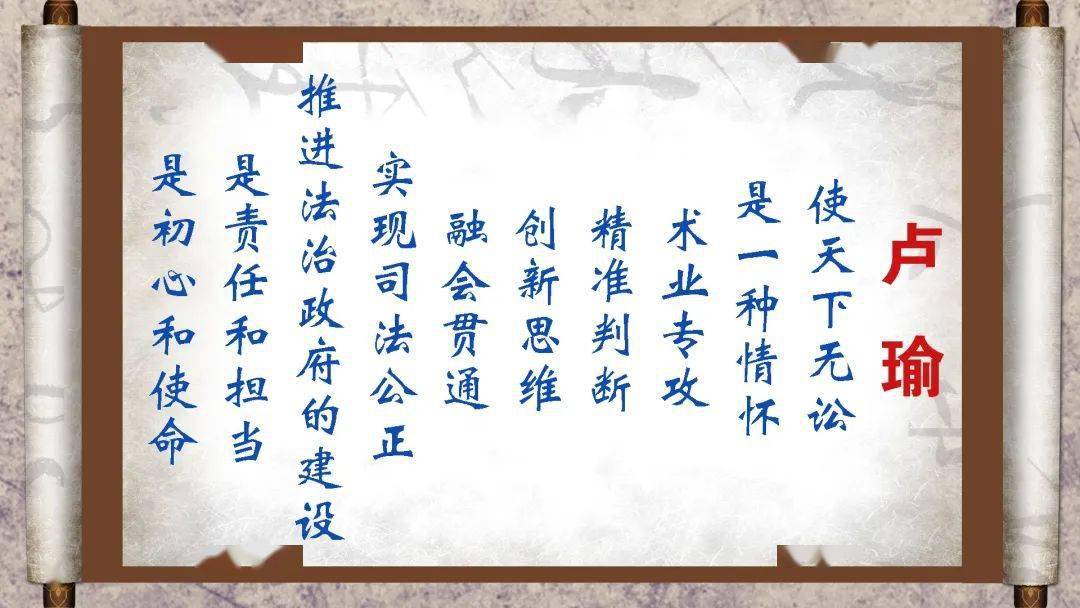 卢瑜
使天下无讼
是一种情怀
术业专攻
精准判断
创新思维
融会贯通
实现司法公正
推进法治政府的建设
是责任和担当
是初心和使命